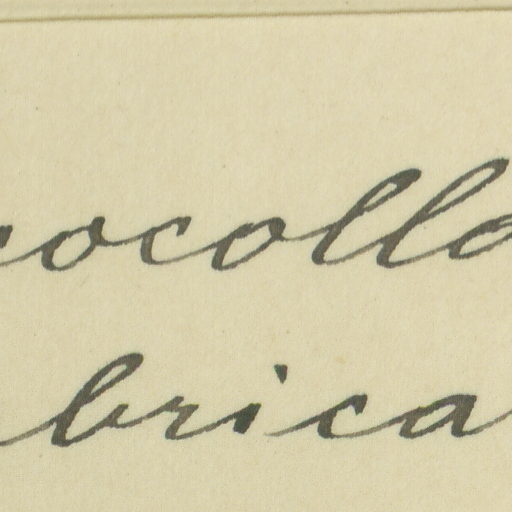 cocolla
brica